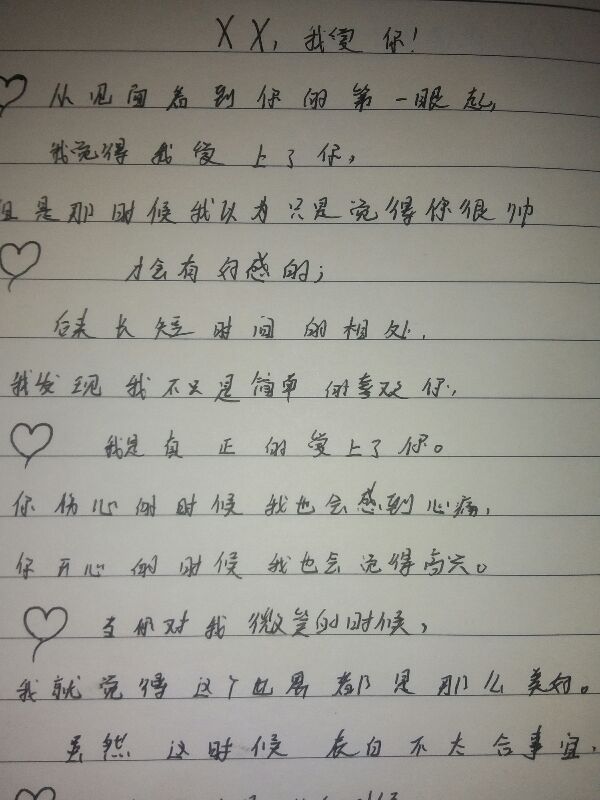 XX,我爱你!
从见面看到你的第一眼起,
我觉得我爱上了你,
但是那时候我以为只是觉得你很帅
才会有好感的;
后来长短时间的相处,
我发现我不只是简单的喜欢你,
我是真正的爱上了你。
你伤心的时候我也会感到心痛,
你开心的时候我也会觉得高兴。
当你对我微笑的时候,
我就觉得这个世界都是那么美好。
虽然这时候表白不太合事宜,